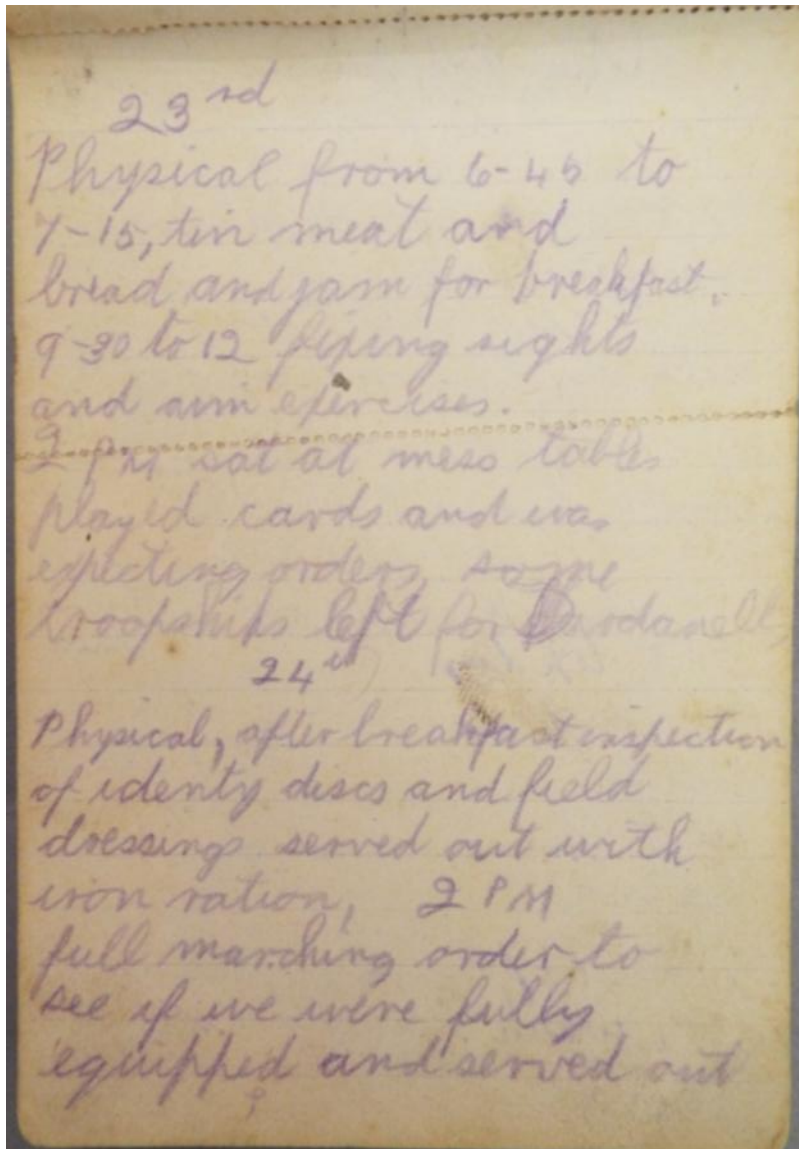 23rd
Physical from 6-45 to
7-15, tin meat and
bread and jam for breakfast.
9-30 to 12 fixing sights
and aim exercises.
2 PM sat at mess table
played cards and was
expecting orders some
troopships left for Dardanelles
24th
Physical, after breakfast inspection
of identy discs and field
dressings served out with
iron ration, 2 PM
full marching order to
see if we were fully
equipped and served out